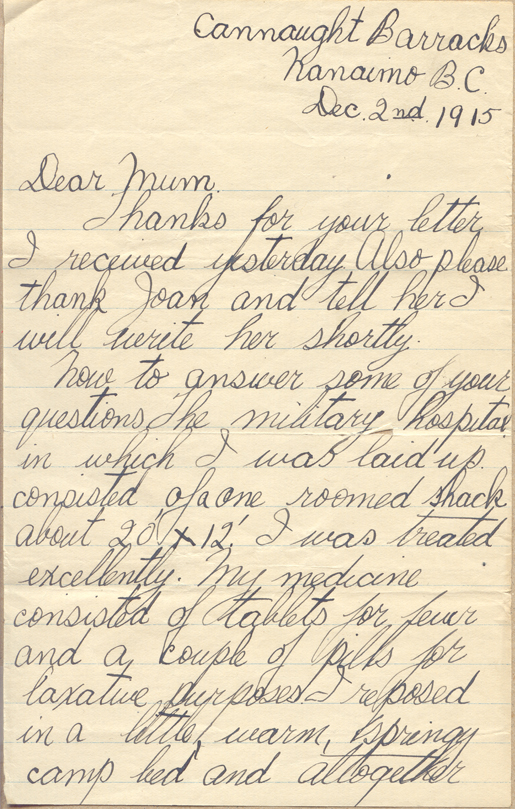 Cannaught Barracks
Nanaimo B.C.
Dec. 2nd. 1915
Dear Mum.
Thanks for your letter
I received yesterday. Also please
thank Joan and tell her I
will write her shortly.
Now to answer some of your
questions. The military hospital
in which I was laid up
consisted of a one roomed shack
about 20' x 12'. I was treated
excellently. My medicine
consisted of tablets for fever
and a couple of pills for
laxative purposes – I reposed
in a little, warm, springy
camp bed and altogether